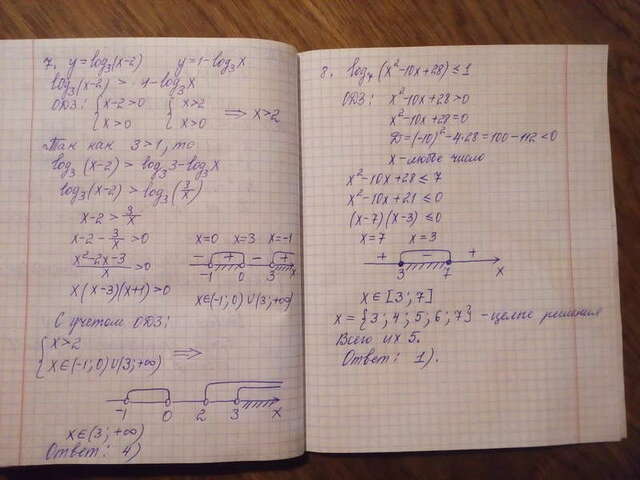 7. y=log₃(x-2) y=1-log₃x
log₃(x-2) > 1-log₃x
ОДЗ: { x-2>0 { x>2 ⟹ x>2
x>0 x>0
Так как 3>1, то
log₃(x-2) > log₃3-log₃x
log₃(x-2) > log₃(3/x)
x-2 > 3/x
x-2-3/x >0 x=0 x=3 x=-1
(x²-2x-3)/x >0 - + - +
-1 0 3 x
x(x-3)(x+1)>0 x∈(-1;0)∪(3;+∞)
С учетом ОДЗ:
{ x>2
x∈(-1;0)∪(3;+∞) ⟹
-1 0 2 3 x
x∈(3;+∞)
Ответ: 4)
8. log₇(x²-10x+28)≤1
ОДЗ: x²-10x+28>0
x²-10x+28=0
D=(-10)²-4·28=100-112<0
x-любое число
x²-10x+28≤7
x²-10x+21≤0
(x-7)(x-3)≤0
x=7 x=3
+ - +
3 7 x
x∈[3;7]
x={3;4;5;6;7} -целые решения
Всего их 5.
Ответ: 1).